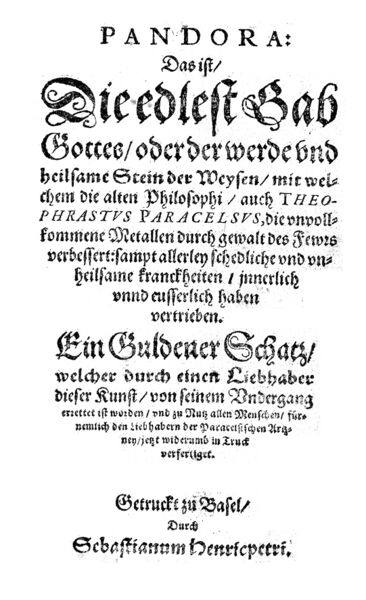 PANDORA:
Das ist/
Die edlest Gab
Gottes/ oder der werde vnd
heilsame Stein der Weysen/ mit wel-
chem die alten Philosophi/ auch THEO-
PHRASTVS PARACELSVS, die vnvoll-
kommene Metallen durch gewalt des Fewrs
verbessert: sampt allerley schedliche vnd vn-
heilsame kranckheiten/ jnnerlich
vnnd eusserlich haben
vertrieben.
Ein Guldener Schatz/
welcher durch einen Liebhaber
dieser Kunst/ von seinem Vndergang
errettet ist worden/ vnd zu Nutz allen Menschen/ für-
nemlich den Liebhabern der Paracelsischen Artz-
ney/ jetzt widerumb in Truck
verfertiget.
Getruckt zu Basel/
Durch
Sebastianum Henricpetri.